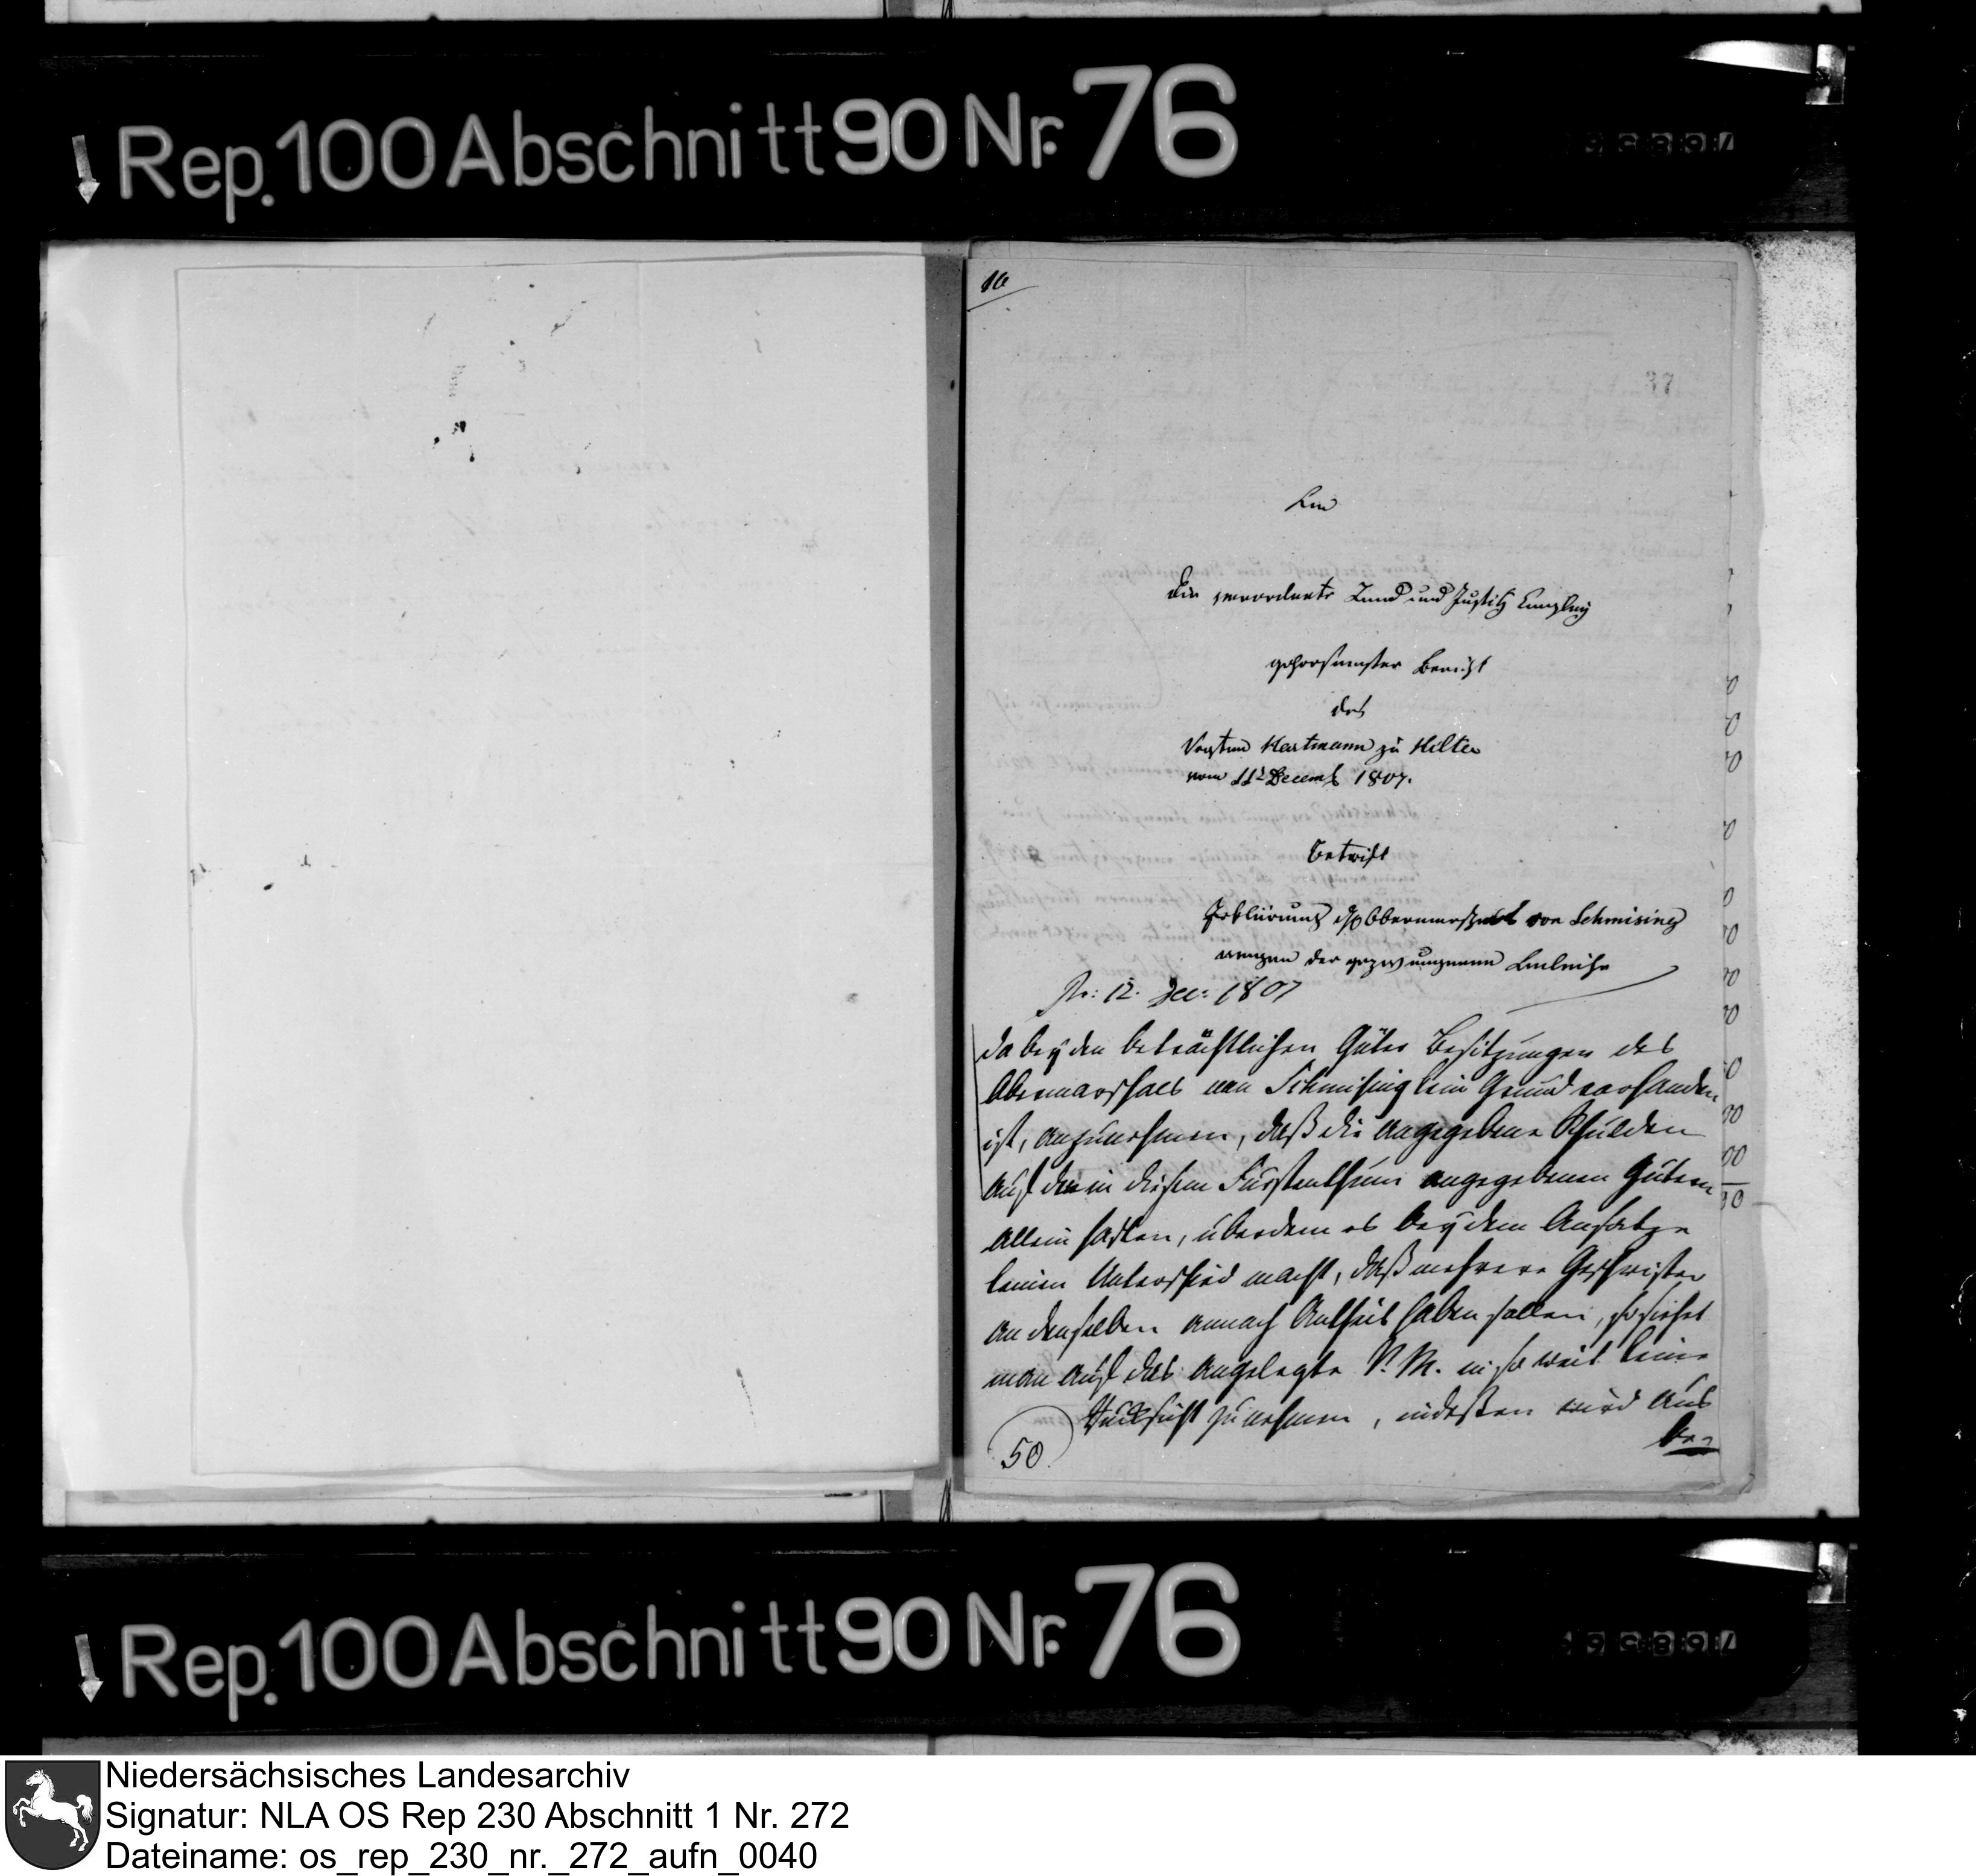 Rep. 100 Abschnitt 90 Nr. 76
16
37
An
die verordnete Land und Justitz Canzley
gehorsamster Bericht
des
Vogten Hartmann zu Hilter
vom 11t Decemb 1807.
betrift
Erklärung des Obermarschal von Schmising
wegen der gezwungenen Anleihe
Pr: 12. Dec: 1807
Da bey den beträchtlichen Güter Besitzungen des
Obermarschall von Schmising kein Grund vorhanden
ist, anzunehmen, daß die angegebene Schulden
auf den in diesem Fürstenthum angegebenen Gütern
allein haften, überdem es bey dem Ansatze
keinen Unterschied macht, daß mehrere Geschwister
an denselben annoch Antheil haben sollen, so stehet
man auf das angelegte P. M. in so weit keine
Rücksicht zu nehmen, indeßen wird aus
be-
50
Rep. 100 Abschnitt 90 Nr. 76
Niedersächsisches Landesarchiv
Signatur: NLA OS Rep 230 Abschnitt 1 Nr. 272
Dateiname: os_rep_230_nr._272_aufn_0040